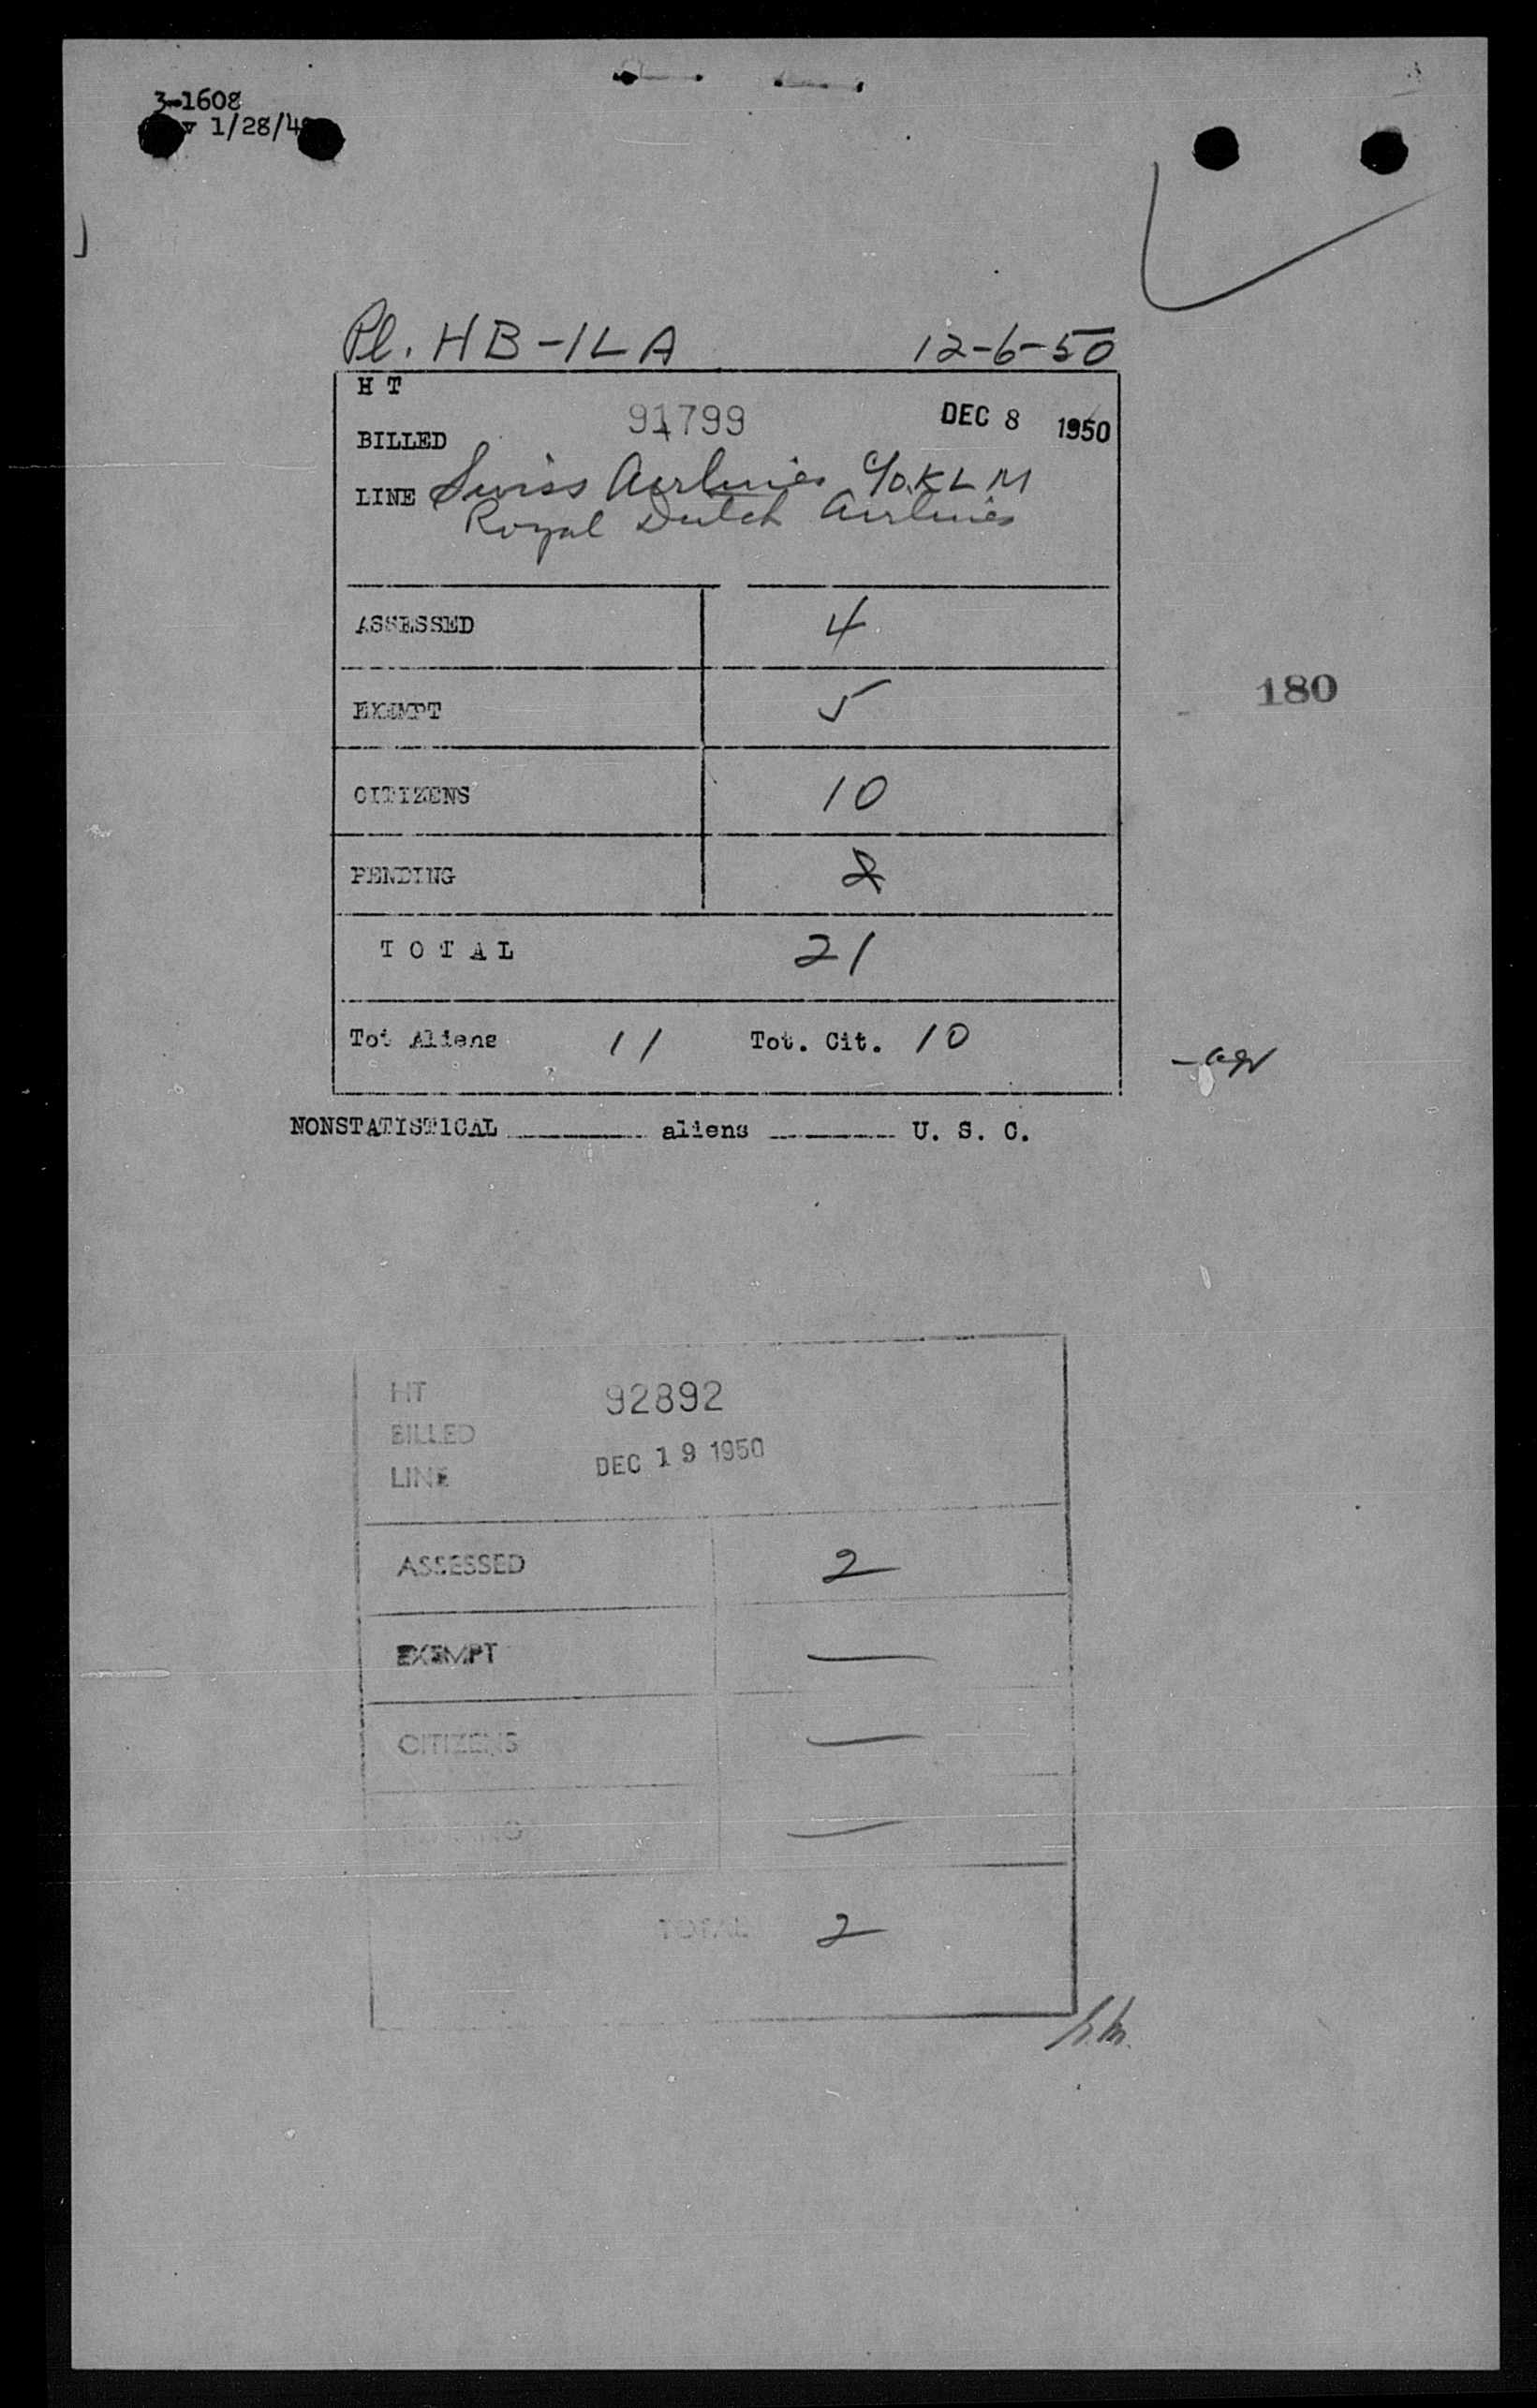 3-1608
v 1/28/4
Pl. HB-ILA 12-6-50
H T
91799 DEC 8 1950
BILLED
LINE Swiss Airlines c/o KLM
Royal Dutch Airlines
ASSESSED 4
EXEMPT 5
180
CITIZENS 10
PENDING 2
T O T A L 21
Tot Aliens 11 Tot. Cit. 10
NONSTATISTICAL aliens U. S. C.
HT 92892
BILLED
DEC 19 1950
LINE
ASSESSED 2
EXEMPT —
CITIZENS —
—
TOTAL 2